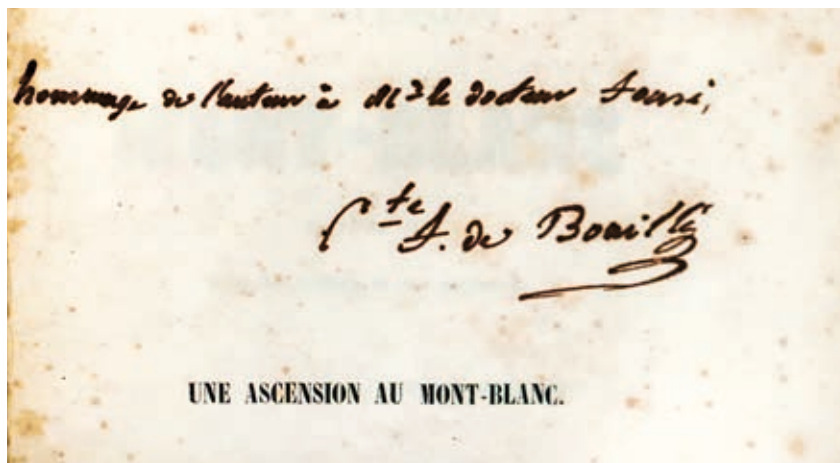 hommage de l'auteur à Mr le docteur
Cte F. de Bouillé
UNE ASCENSION AU MONT-BLANC.